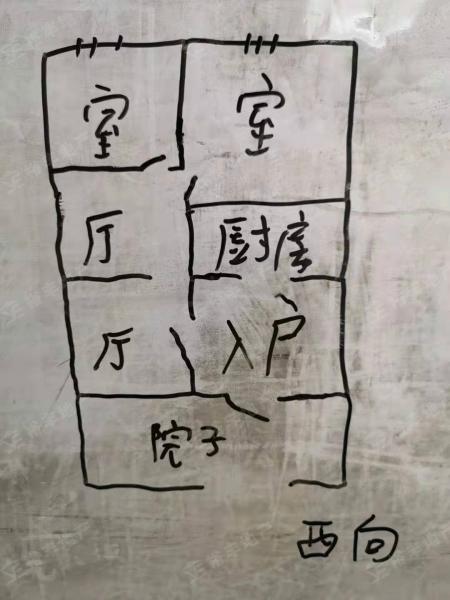 室 室
厅 厨房
厅 入户
院子
西向